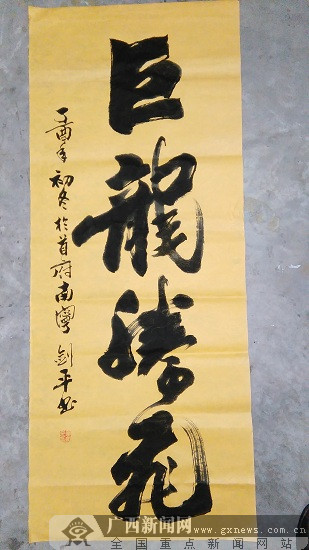 巨龍騰飛
丁酉年初冬於首府南寧劍平书
广西新闻网
www.gxnews.com.cn
全国重点新闻网站